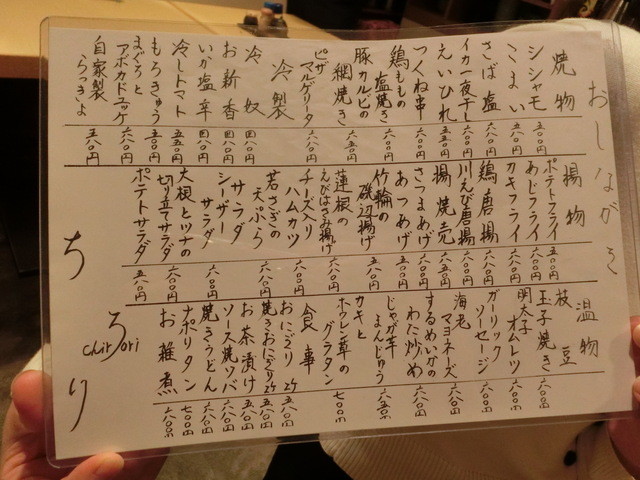 おしながき
焼物
シシャモ 五〇〇円
こまい 五八〇円
さば塩 六八〇円
イカ一夜干し 六八〇円
えいひれ 五八〇円
つくね串
鶏ももの塩焼き
豚カルビの網焼き 六五〇円
ピザマルゲリータ 六八〇円
冷製
冷奴 四八〇円
お新香 四八〇円
いか塩辛 四八〇円
冷しトマト 五五〇円
もろきゅう 五五〇円
まぐろとアボカドユッケ 六八〇円
自家製らっきょ 五八〇円
揚物
ポテトフライ 五〇〇円
あじフライ
カキフライ
鶏唐揚
川えび唐揚
揚焼売
さつまあげ
あつあげ
竹輪の磯辺揚げ 五八〇円
蓮根のえびはさみ揚げ 六八〇円
チーズ入りハムカツ 六八〇円
若さぎの天ぷら 六八〇円
サラダ
シーザーサラダ 六〇〇円
大根とツナの切り立てサラダ 六〇〇円
ポテトサラダ 五八〇円
温物
枝豆
玉子焼き 六〇〇円
明太子オムレツ
ガーリックソーセージ
海老マヨネーズ
するめいかのわた炒め
じゃが芋まんじゅう 六五〇円
カキとホウレン草のグラタン 七〇〇円
食事
おにぎり 2ケ 五八〇円
焼きおにぎり 2ケ 五八〇円
お茶漬け
ソース焼ソバ
焼きうどん 六八〇円
ナポリタン 七〇〇円
お雑煮 六八〇円
ちろり
chirori